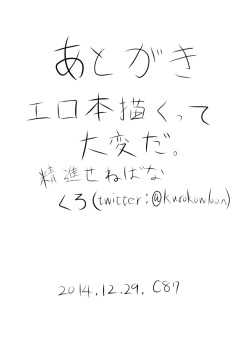 あとがき
エロ本描くって
大変だ。
精進せねばな
くろ(twitter:@kurokowloon)
2014.12.29. C87